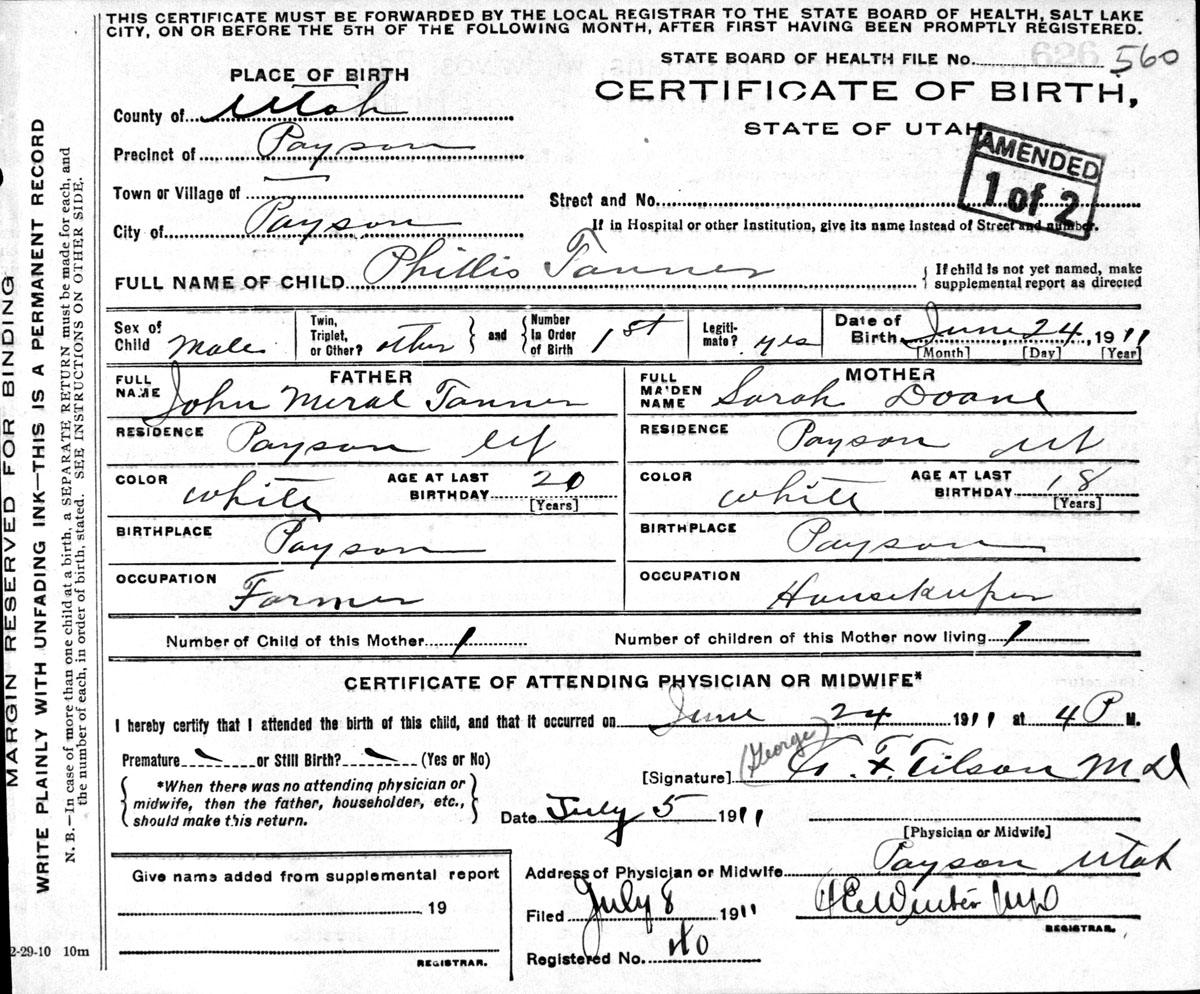 THIS CERTIFICATE MUST BE FORWARDED BY THE LOCAL REGISTRAR TO THE STATE BOARD OF HEALTH, SALT LAKE
CITY, ON OR BEFORE THE 5TH OF THE FOLLOWING MONTH, AFTER FIRST HAVING BEEN PROMPTLY REGISTERED.
STATE BOARD OF HEALTH FILE No. 560
PLACE OF BIRTH
CERTIFICATE OF BIRTH,
STATE OF UTAH
AMENDED
1 of 2
County of Utah
Precinct of Payson
Town or Village of
City of Payson
Street and No.
If in Hospital or other Institution, give its name instead of Street and number.
FULL NAME OF CHILD Phillis Tanner
If child is not yet named, make
supplemental report as directed
Sex of Child Male
Twin, Triplet, or Other? other and Number In Order of Birth 1st
Legiti-mate? yes
Date of Birth June 24, 1911
[Month] [Day] [Year]
FATHER
FULL NAME John Meral Tanner
RESIDENCE Payson Ut
COLOR White AGE AT LAST BIRTHDAY 20
[Years]
BIRTHPLACE Payson
OCCUPATION Farmer
MOTHER
FULL MAIDEN NAME Sarah Doane
RESIDENCE Payson Ut
COLOR White AGE AT LAST BIRTHDAY 18
[Years]
BIRTHPLACE Payson
OCCUPATION Housekeeper
Number of Child of this Mother 1 Number of children of this Mother now living 1
CERTIFICATE OF ATTENDING PHYSICIAN OR MIDWIFE*
I hereby certify that I attended the birth of this child, and that it occurred on June 24 1911 at 4 P M.
Premature or Still Birth? (Yes or No)
*When there was no attending physician or
midwife, then the father, householder, etc.,
should make this return.
(George)
[Signature] F. Tilson M D
Date July 5 1911
[Physician or Midwife]
Address of Physician or Midwife Payson Utah
Filed July 8 1911
REGISTRAR.
Registered No. 40
Give name added from supplemental report
19
REGISTRAR.
2-29-10 10m
MARGIN RESERVED FOR BINDING
WRITE PLAINLY WITH UNFADING INK—THIS IS A PERMANENT RECORD
N. B.—In case of more than one child at a birth, a SEPARATE RETURN must be made for each, and
the number of each, in order of birth, stated. SEE INSTRUCTIONS ON OTHER SIDE.